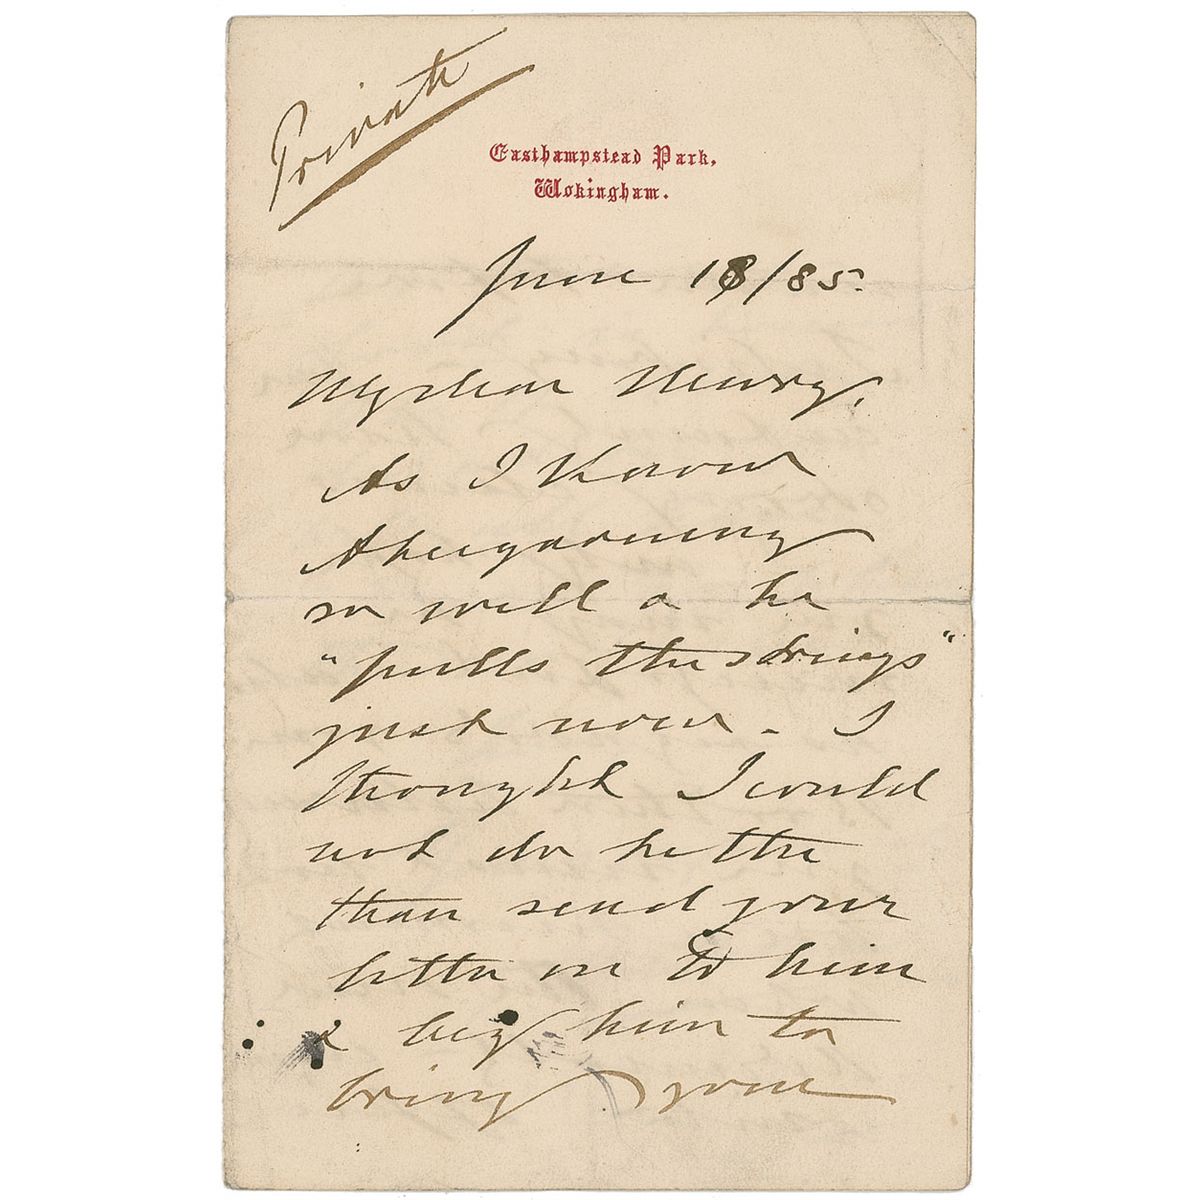 Private
Easthampstead Park,
Wokingham.
June 18/85.
My dear Newry,
As I know
Abergavenny
so well & he
"pulls the strings"
just now. I
thought I could
not do better
than send your
letter on to him
& beg him to
bring your